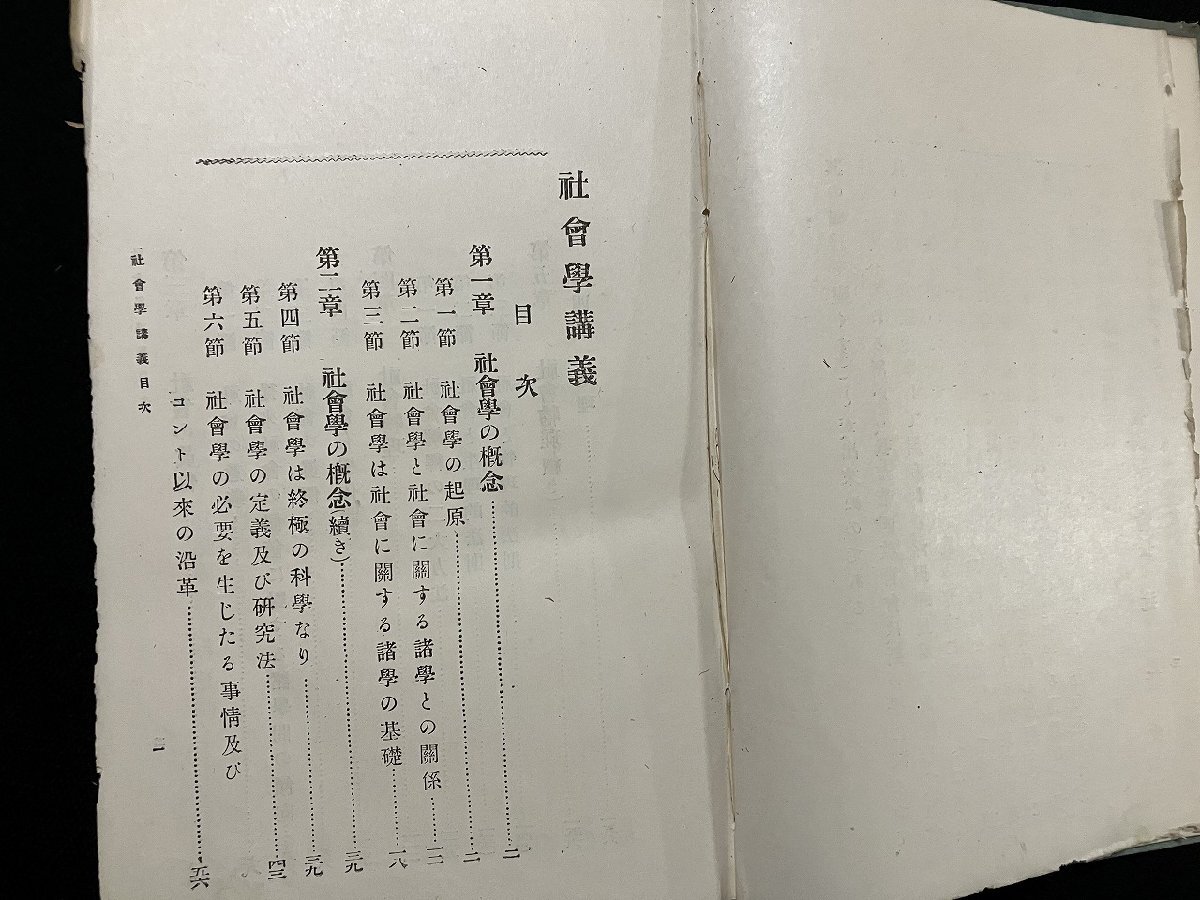 社會學講義
目次
第一章 社會學の概念……二
第一節 社會學の起原……二
第二節 社會學と社會に關する諸學との關係……一二
第三節 社會學は社會に關する諸學の基礎……一八
第二章 社會學の概念(續き)……三九
第四節 社會學は終極の科學なり……三九
第五節 社會學の定義及び研究法……四三
第六節 社會學の必要を生じたる事情及び
コント以來の沿革……五六
社會學講義目次